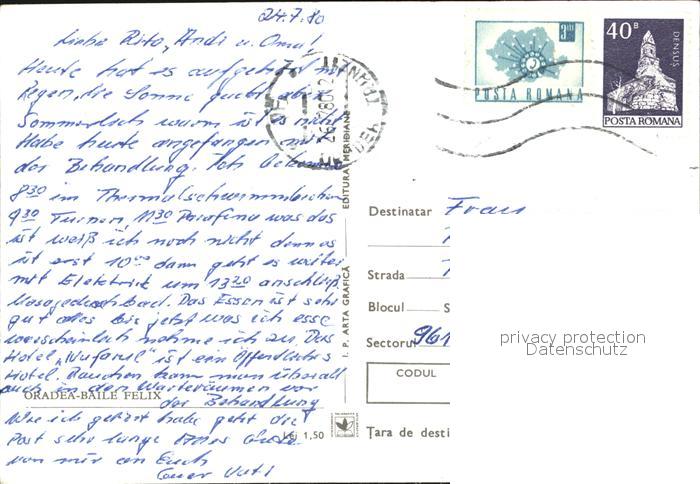 24.7.80
Liebe Rita, Andi u. Oma!
Heute hat es aufgehört mit
Regen, die Sonne guckt aber
Sommerlich warm ist es nicht
Habe heute angefangen mit
der Behandlung. Ich bekomme
8 30 im Thermalschwimmbecken
9 30 Turnen, 11 30 Parafina was das
ist weiß ich noch nicht denn es
ist erst 10 00 dann geht es weiter
mit Elektrik um 13 20 anschließ
Das Essen ist sehr
gut alles bis jetzt was ich esse
warscheinlich nehme ich zu. Das
Hotel ist ein Öffentliches
Hotel. Rauchen kann man überall
auch in den Warteräumen vor
der Behandlung
ORADEA-BAILE FELIX
Wie ich gehört habe geht die
Post sehr lange
von mir an Euch
Euer Vati
EDITURA MERIDIANE
I. P. ARTA GRAFICĂ
Lei 1,50
POSTA ROMANA
40 B
DENSUŞ
POSTA ROMANA
Destinatar Frau
Strada
Blocul S
Sectorul 961
CODUL
Ţara de desti
privacy protection
Datenschutz